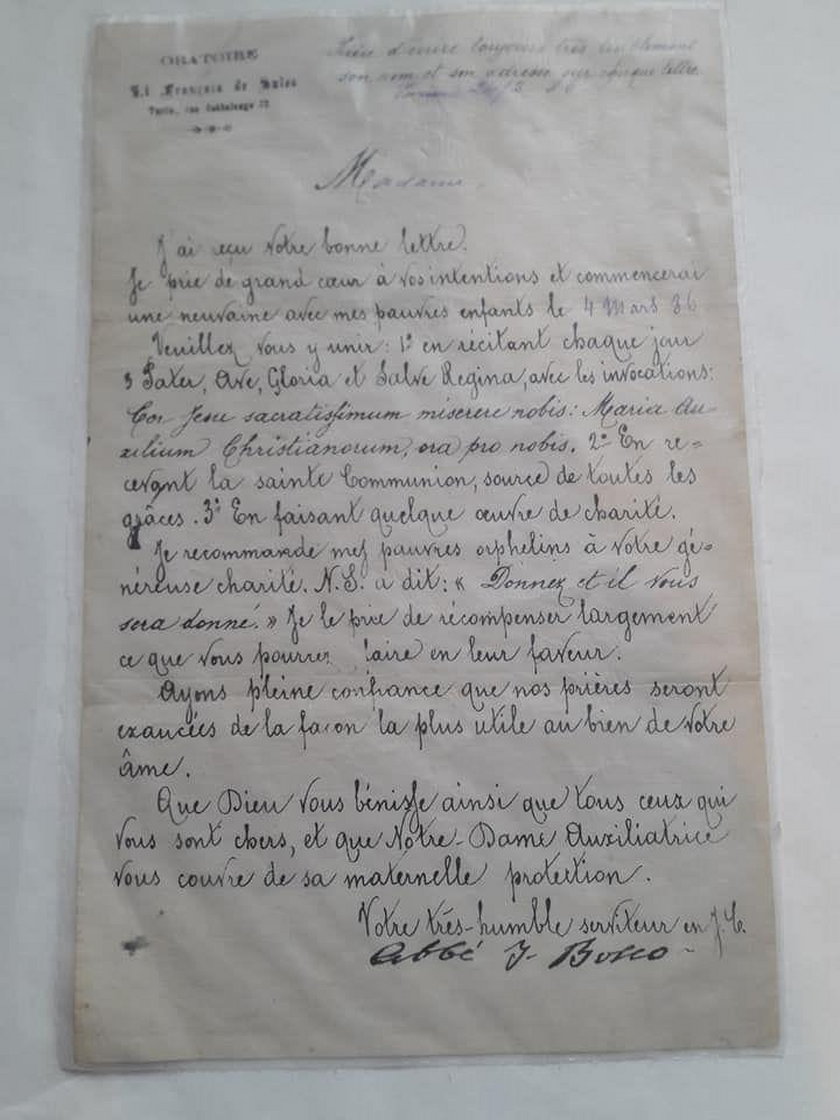 ORATOIRE
St François de Sales
Turin, rue Cottolengo 32
Prière d'écrire toujours très lisiblement
son nom et son adresse sur chaque lettre
Madame,
J'ai reçu votre bonne lettre.
Je prie de grand cœur à vos intentions et commencerai
une neuvaine avec mes pauvres enfants le 4 Mars 86
Veuillez vous y unir: 1º en récitant chaque jour
3 Pater, Ave, Gloria et Salve Regina, avec les invocations:
Cor Jesu sacratissimum miserere nobis: Maria Au-
xilium Christianorum, ora pro nobis. 2º En re=
cevant la sainte Communion, source de toutes les
grâces. 3º En faisant quelque œuvre de charité.
Je recommande mes pauvres orphelins à votre gé=
néreuse charité. N.S. a dit: « Donnez et il vous
sera donné. » Je le prie de récompenser largement
ce que vous pourrez faire en leur faveur.
Ayons pleine confiance que nos prières seront
exaucées de la façon la plus utile au bien de votre
âme.
Que Dieu vous bénisse ainsi que tous ceux qui
vous sont chers, et que Notre-Dame Auxiliatrice
vous couvre de sa maternelle protection.
Votre très-humble serviteur en J.C.
Abbé J. Bosco